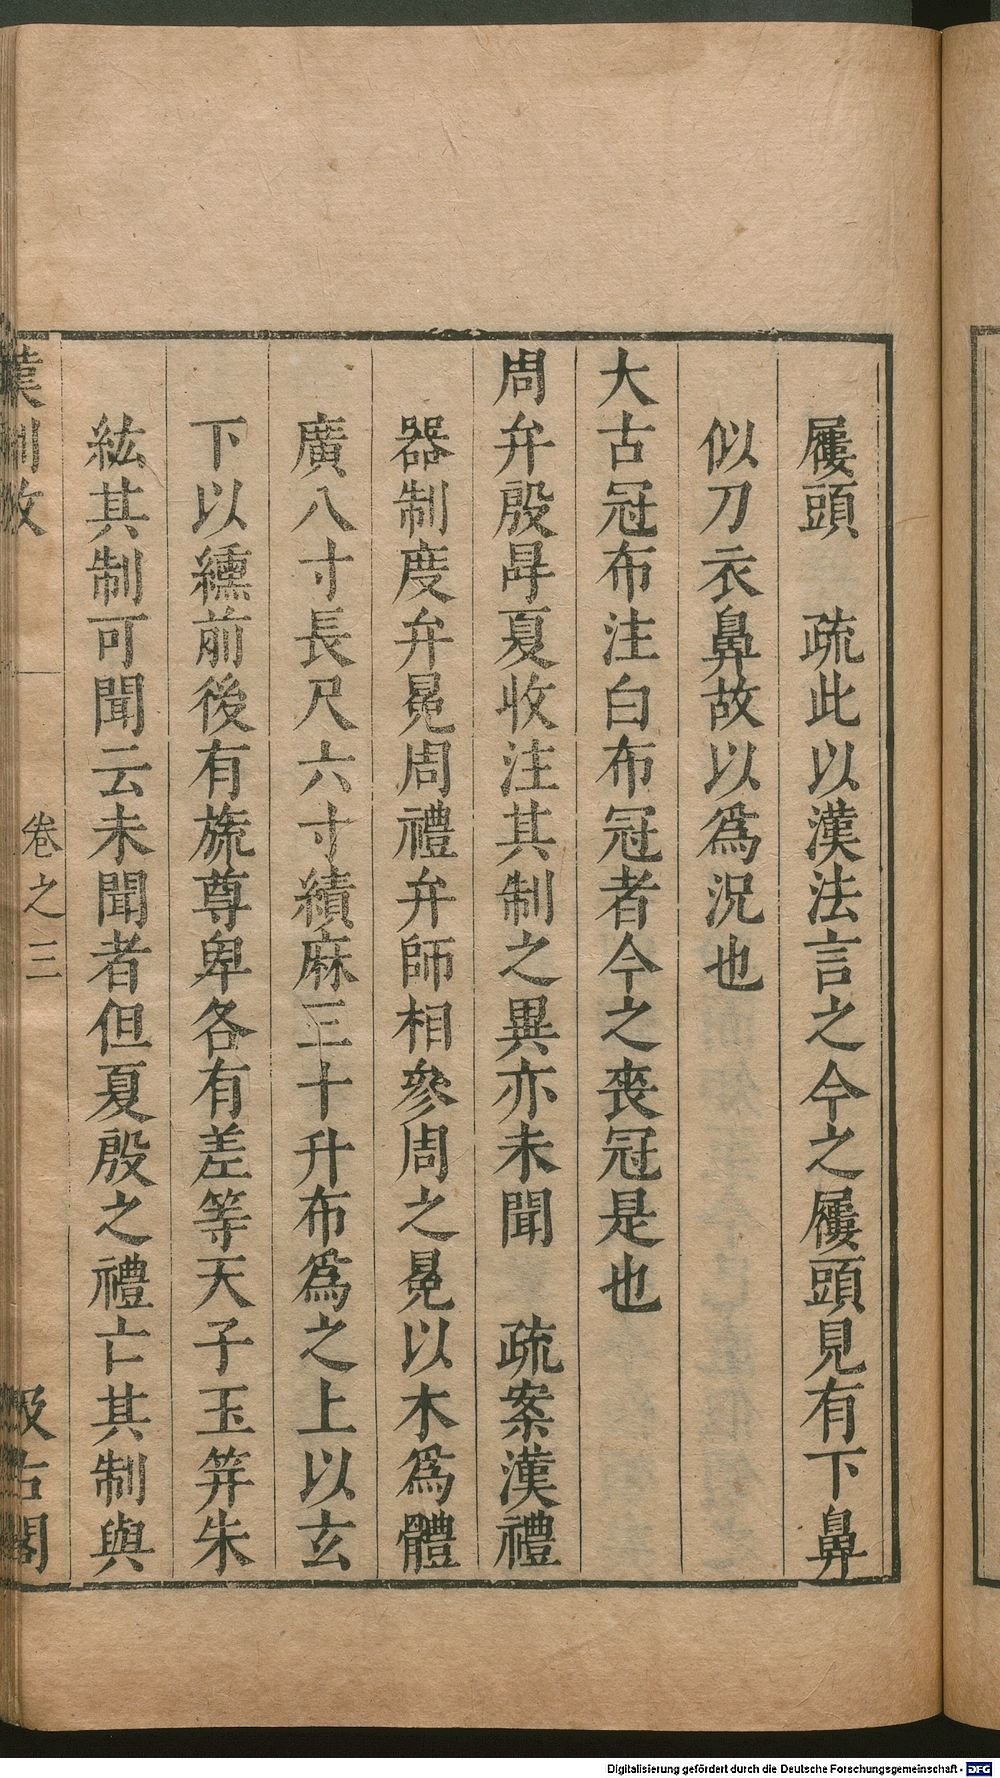 屨頭　疏此以漢法言之今之屨頭見有下鼻
似刀衣鼻故以爲況也
大古冠布注白布冠者今之喪冠是也
周弁殷冔夏收注其制之異亦未聞　疏案漢禮
器制度弁冕周禮弁師相參周之冕以木爲體
廣八寸長尺六寸績麻三十升布爲之上以玄
下以纁前後有旒尊卑各有差等天子玉笄朱
紘其制可聞云未聞者但夏殷之禮亡其制與
漢制攷
卷之三
汲古閣
Digitalisierung gefördert durch die Deutsche Forschungsgemeinschaft - DFG